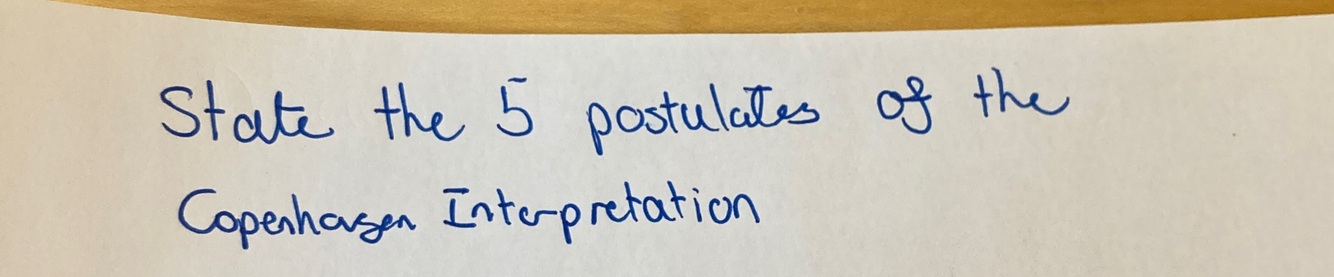 State the 5 postulates of the
Copenhagen Interpretation